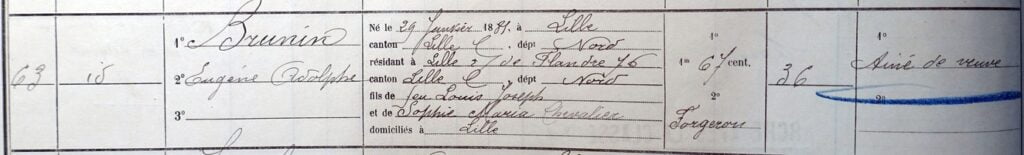 1º Brunin
63 id 2º Eugène Adolphe
3º
Né le 29 Janvier 1881, à Lille
canton Lille C, dép: Nord
résidant à Lille r de Flandre 76
canton Lille C, dép: Nord
fils de feu Louis Joseph
et de Sophie Maria Chevalier
domiciliés à Lille
1º
1m 67 cent.
2º
Forgeron
36
1º
Ainé de veuve
2º